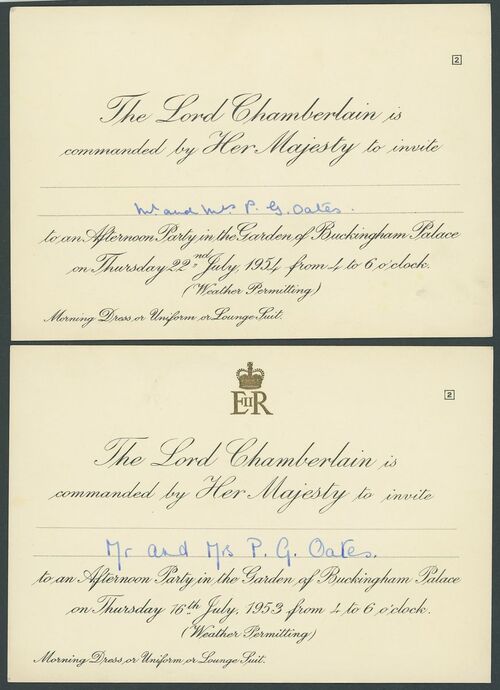 2
The Lord Chamberlain is
commanded by Her Majesty to invite
Mr and Mrs P. G. Oates.
to an Afternoon Party in the Garden of Buckingham Palace
on Thursday 22nd July, 1954 from 4 to 6 o'clock.
(Weather Permitting)
Morning Dress, or Uniform, or Lounge Suit.
EIIR
2
The Lord Chamberlain is
commanded by Her Majesty to invite
Mr and Mrs P. G. Oates.
to an Afternoon Party in the Garden of Buckingham Palace
on Thursday 16th July, 1953 from 4 to 6 o'clock.
(Weather Permitting)
Morning Dress, or Uniform or Lounge Suit.